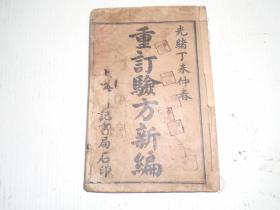 光緒丁未仲春
重訂驗方新編
記書局石印